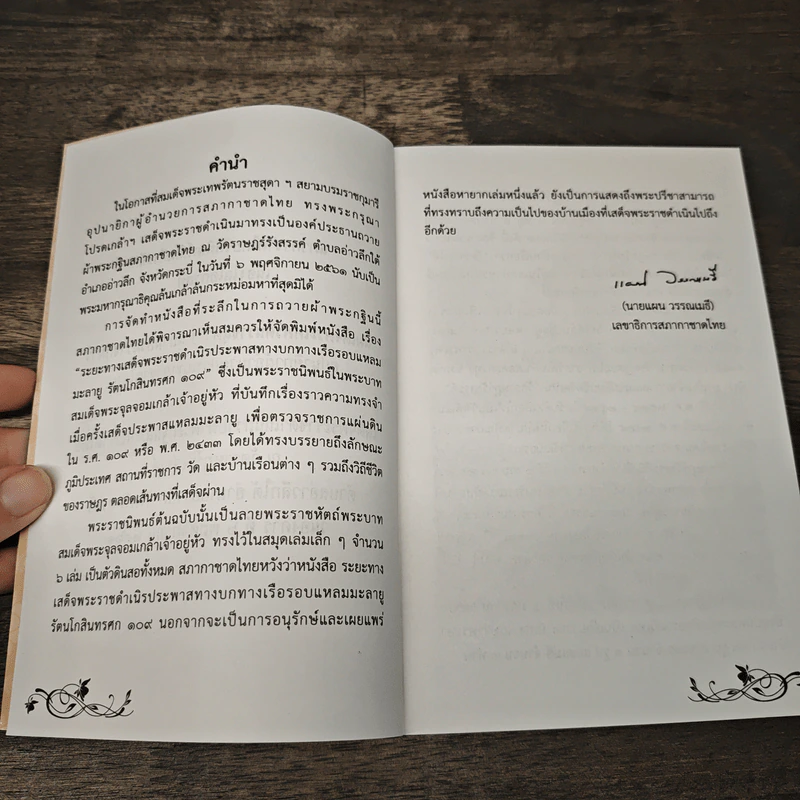 คำนำ
ในโอกาสที่สมเด็จพระเทพรัตนราชสุดา ฯ สยามบรมราชกุมารี
อุปนายิกาผู้อำนวยการสภากาชาดไทย ทรงพระกรุณา
โปรดเกล้าฯ เสด็จพระราชดำเนินมาทรงเป็นองค์ประธานถวาย
ผ้าพระกฐินสภากาชาดไทย ณ วัดราษฎร์รังสรรค์ ตำบลอ่าวลึกใต้
อำเภออ่าวลึก จังหวัดกระบี่ ในวันที่ ๖ พฤศจิกายน ๒๕๖๑ นับเป็น
พระมหากรุณาธิคุณล้นเกล้าล้นกระหม่อมหาที่สุดมิได้
การจัดทำหนังสือที่ระลึกในการถวายผ้าพระกฐินนี้
สภากาชาดไทยได้พิจารณาเห็นสมควรให้จัดพิมพ์หนังสือ เรื่อง
“ระยะทางเสด็จพระราชดำเนิรประพาสทางบกทางเรือรอบแหลม
มะลายู รัตนโกสินทรศก ๑๐๙” ซึ่งเป็นพระราชนิพนธ์ในพระบาท
สมเด็จพระจุลจอมเกล้าเจ้าอยู่หัว ที่บันทึกเรื่องราวความทรงจำ
เมื่อครั้งเสด็จประพาสแหลมมะลายู เพื่อตรวจราชการแผ่นดิน
ใน ร.ศ. ๑๐๙ หรือ พ.ศ. ๒๔๓๓ โดยได้ทรงบรรยายถึงลักษณะ
ภูมิประเทศ สถานที่ราชการ วัด และบ้านเรือนต่าง ๆ รวมถึงวิถีชีวิต
ของราษฎร ตลอดเส้นทางที่เสด็จผ่าน
พระราชนิพนธ์ต้นฉบับนั้นเป็นลายพระราชหัตถ์พระบาท
สมเด็จพระจุลจอมเกล้าเจ้าอยู่หัว ทรงไว้ในสมุดเล่มเล็ก ๆ จำนวน
๖ เล่ม เป็นตัวดินสอทั้งหมด สภากาชาดไทยหวังว่าหนังสือ ระยะทาง
เสด็จพระราชดำเนิรประพาสทางบกทางเรือรอบแหลมมะลายู
รัตนโกสินทรศก ๑๐๙ นอกจากจะเป็นการอนุรักษ์และเผยแพร่
หนังสือหายากเล่มหนึ่งแล้ว ยังเป็นการแสดงถึงพระปรีชาสามารถ
ที่ทรงทราบถึงความเป็นไปของบ้านเมืองที่เสด็จพระราชดำเนินไปถึง
อีกด้วย
(นายแผน วรรณเมธี)
เลขาธิการสภากาชาดไทย